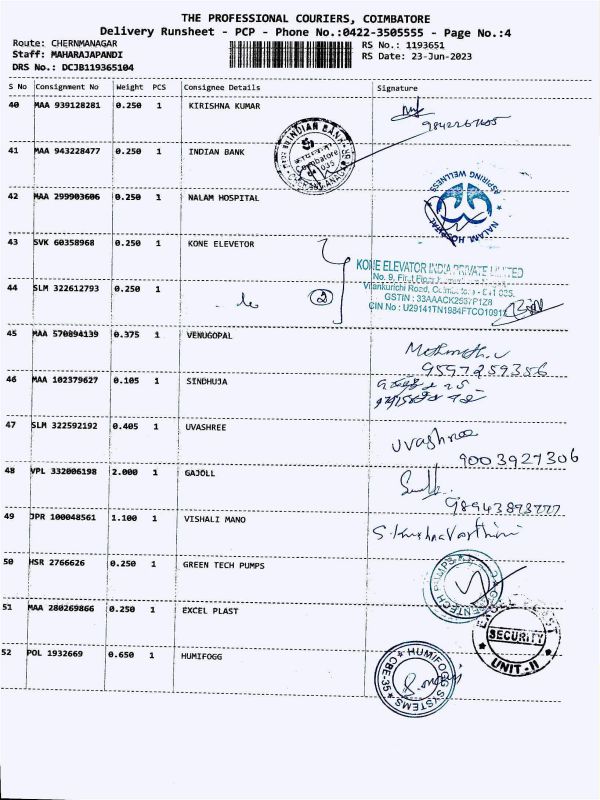 THE PROFESSIONAL COURIERS, COIMBATORE
Delivery Runsheet - PCP - Phone No.:0422-3505555 - Page No.:4
Route: CHERNMANAGAR RS No.: 1193651
Staff: MAHARAJAPANDI RS Date: 23-Jun-2023
DRS No.: DCJB119365104
S No Consignment No Weight PCS Consignee Details Signature
40 MAA 939128281 0.250 1 KIRISHNA KUMAR
41 MAA 943228477 0.250 1 INDIAN BANK
INDIAN BANK
Coimbatore
641 035
42 MAA 299903606 0.250 1 NALAM HOSPITAL
NALAM HOSPITAL
ASPIRING WELLNESS
43 SVK 60358968 0.250 1 KONE ELEVETOR
KONE ELEVATOR INDIA PRIVATE LIMITED
44 SLM 322612793 0.250 1
2
GSTIN : 33AAACK2567P1Z8
CIN No : U29141TN1984FTCO10912
45 MAA 570894139 0.375 1 VENUGOPAL
9597259356
46 MAA 102379627 0.105 1 SINDHUJA
47 SLM 322592192 0.405 1 UVASHREE
uvashree
9003927306
48 VPL 332006198 2.000 1 GAJOLL
49 JPR 100048561 1.100 1 VISHALI MANO
50 HSR 2766626 0.250 1 GREEN TECH PUMPS
51 MAA 280269866 0.250 1 EXCEL PLAST
SECURITY
UNIT-II
52 POL 1932669 0.650 1 HUMIFOGG
HUMIFOGG SYSTEMS
CBE-35